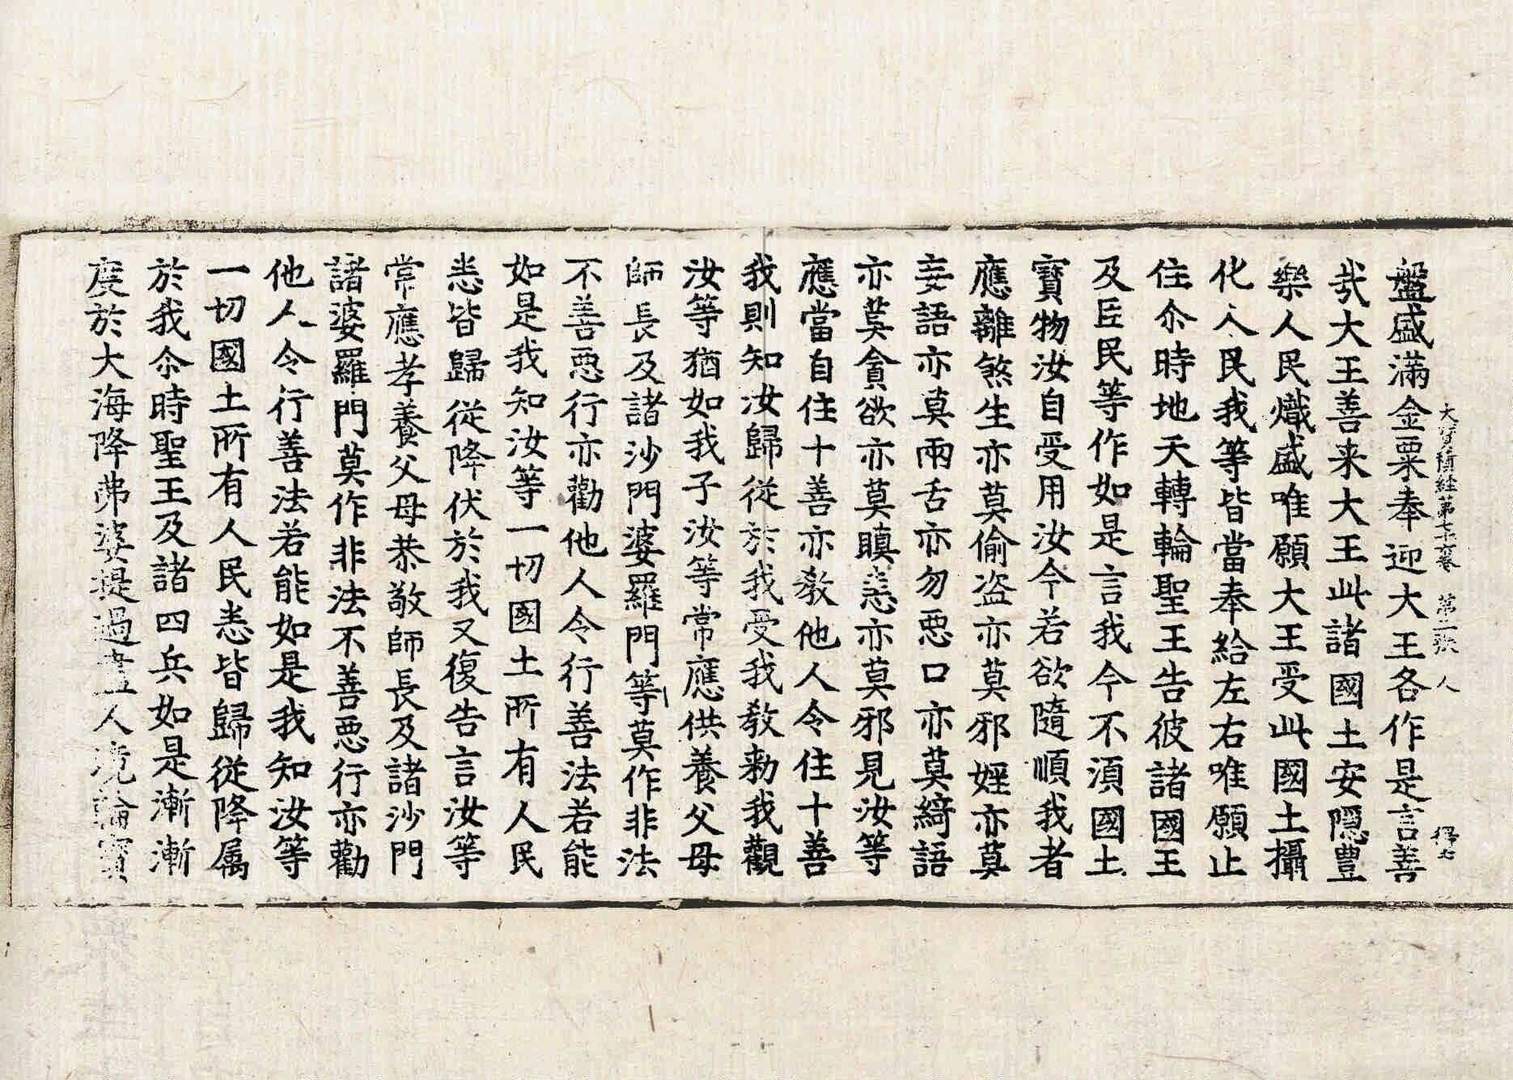 大寶積經第七十六卷 第二張 人
盤盛滿金粟奉迎大王各作是言善
哉大王善来大王此諸國土安隱豊
樂人民熾盛唯願大王受此國土攝
化人民我等皆當奉給左右唯願止
住尒時地天轉輪聖王告彼諸國王
及臣民等作如是言我今不湏國土
寳物汝自受用汝今若欲隨順我者
應離煞生亦莫偷盗亦莫邪婬亦莫
妄語亦莫兩舌亦勿惡口亦莫綺語
亦莫貪欲亦莫瞋恚亦莫邪見汝等
應當自住十善亦教他人令住十善
我則知汝歸從於我受我教勑我觀
汝等猶如我子汝等常應供養父母
師長及諸沙門婆羅門等莫作非法
不善惡行亦勸他人令行善法若能
如是我知汝等一切國土所有人民
悉皆歸從降伏於我又復告言汝等
常應孝養父母恭敬師長及諸沙門
諸婆羅門莫作非法不善惡行亦勸
他人令行善法若能如是我知汝等
一切國土所有人民悉皆歸從降属
於我尒時聖王及諸四兵如是漸漸
度於大海降弗婆提過晝人境輪寳